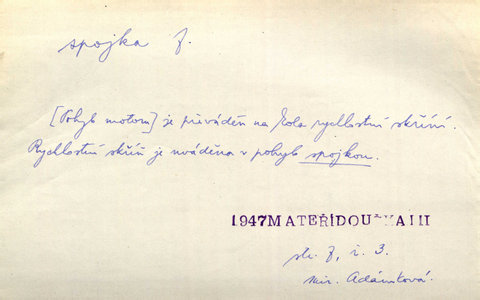 spojka f.
[Pohyb motoru] je převáděn na kola rychlostní skříní.
Rychlostní skříň je uváděna v pohyb spojkou.
1947 MATEŘÍDOUŠKA III
str. 7, č. 3.
Adámková.